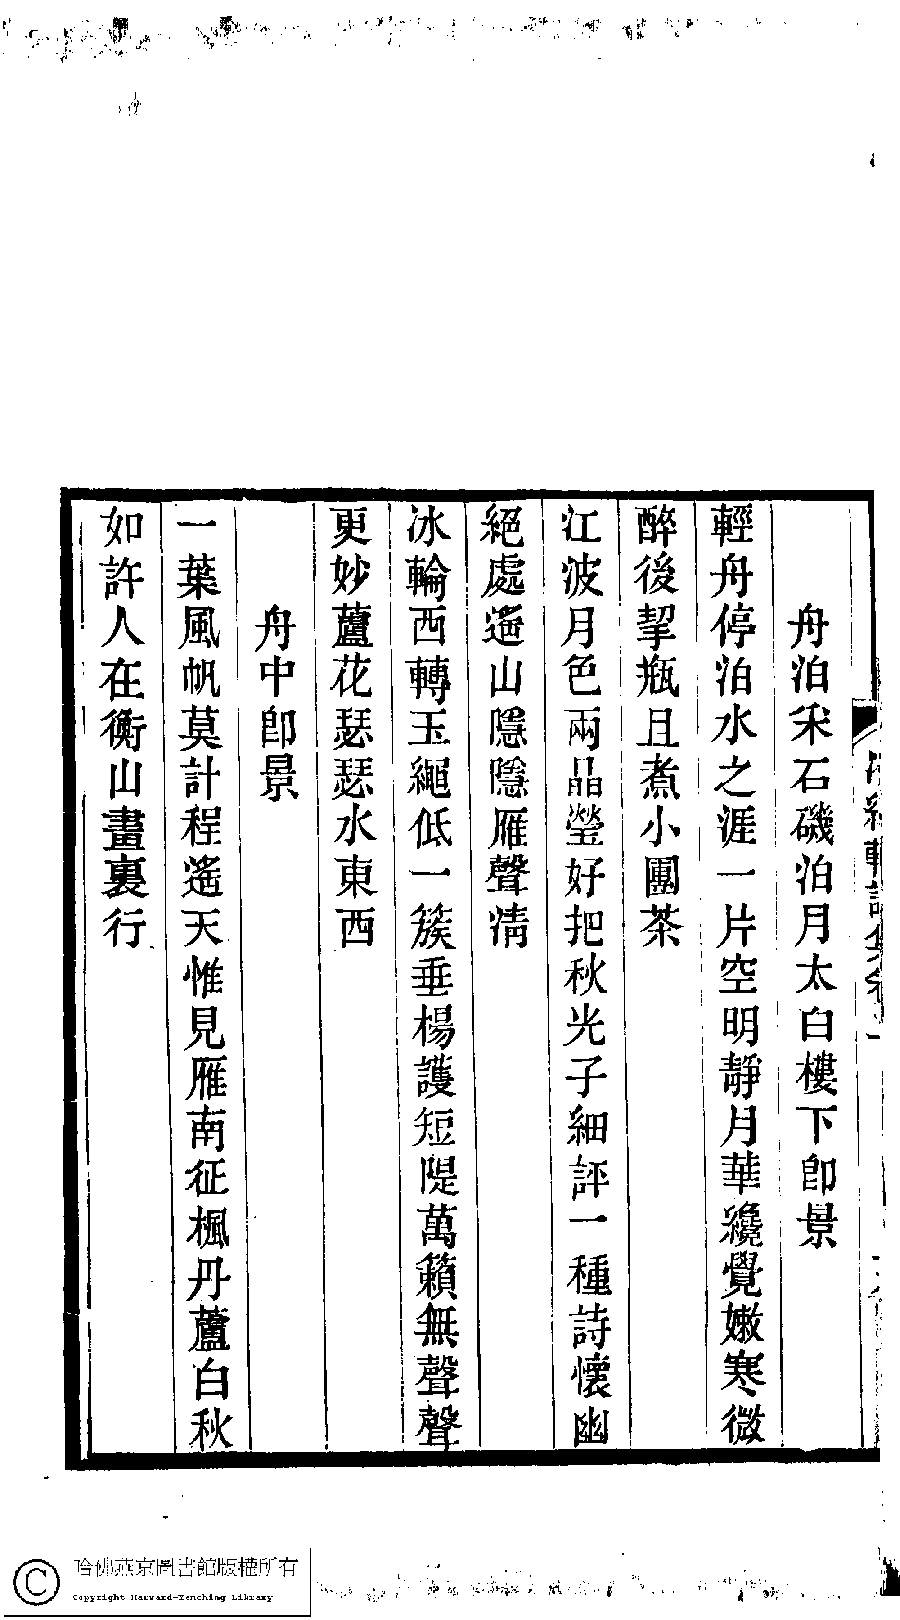 舟泊采石磯泊月太白樓下即景
輕舟停泊水之涯一片空明靜月華纔覺嫩寒微
醉後挈瓶且煮小團茶
江波月色兩晶瑩好把秋光子細評一種詩懷幽
絕處遙山隱隱雁聲清
冰輪西轉玉繩低一簇垂楊護短隄萬籟無聲聲
更妙蘆花瑟瑟水東西
舟中即景
一葉風帆莫計程遙天惟見雁南征楓丹蘆白秋
如許人在衡山畫裏行
哈佛燕京圖書館版權所有
Copyright Harvard-Yenching Library